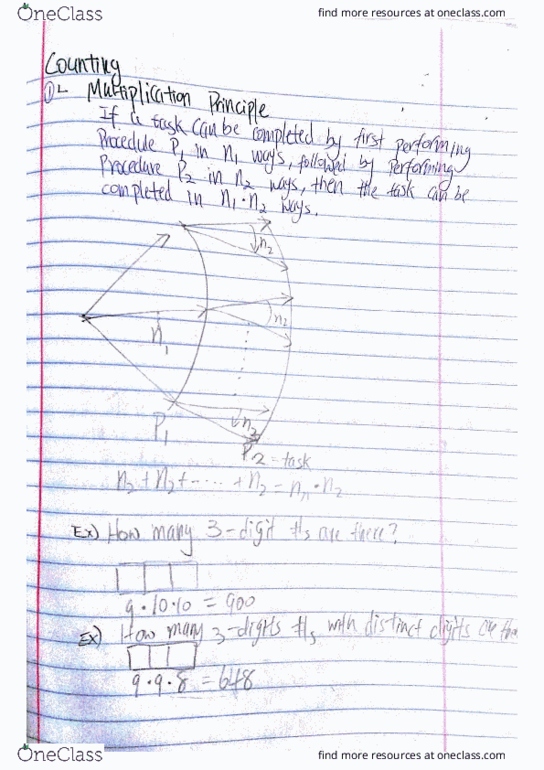 OneClass
find more resources at oneclass.com
Counting
① Multiplication Principle
If a task can be completed by first performing
Procedure P₁ in n₁ ways, followed by performing
Procedure P₂ in n₂ ways, then the task can be
completed in n₁·n₂ ways.
n₂
n₂
n₁
n₂
P₁
P₂ = task
n₂ + n₂ + ····· + n₂ = n₁·n₂
Ex) How many 3-digit #s are there?
9·10·10 = 900
Ex) How many 3-digits #s with distinct digits are
9·9·8 = 648
OneClass
find more resources at oneclass.com